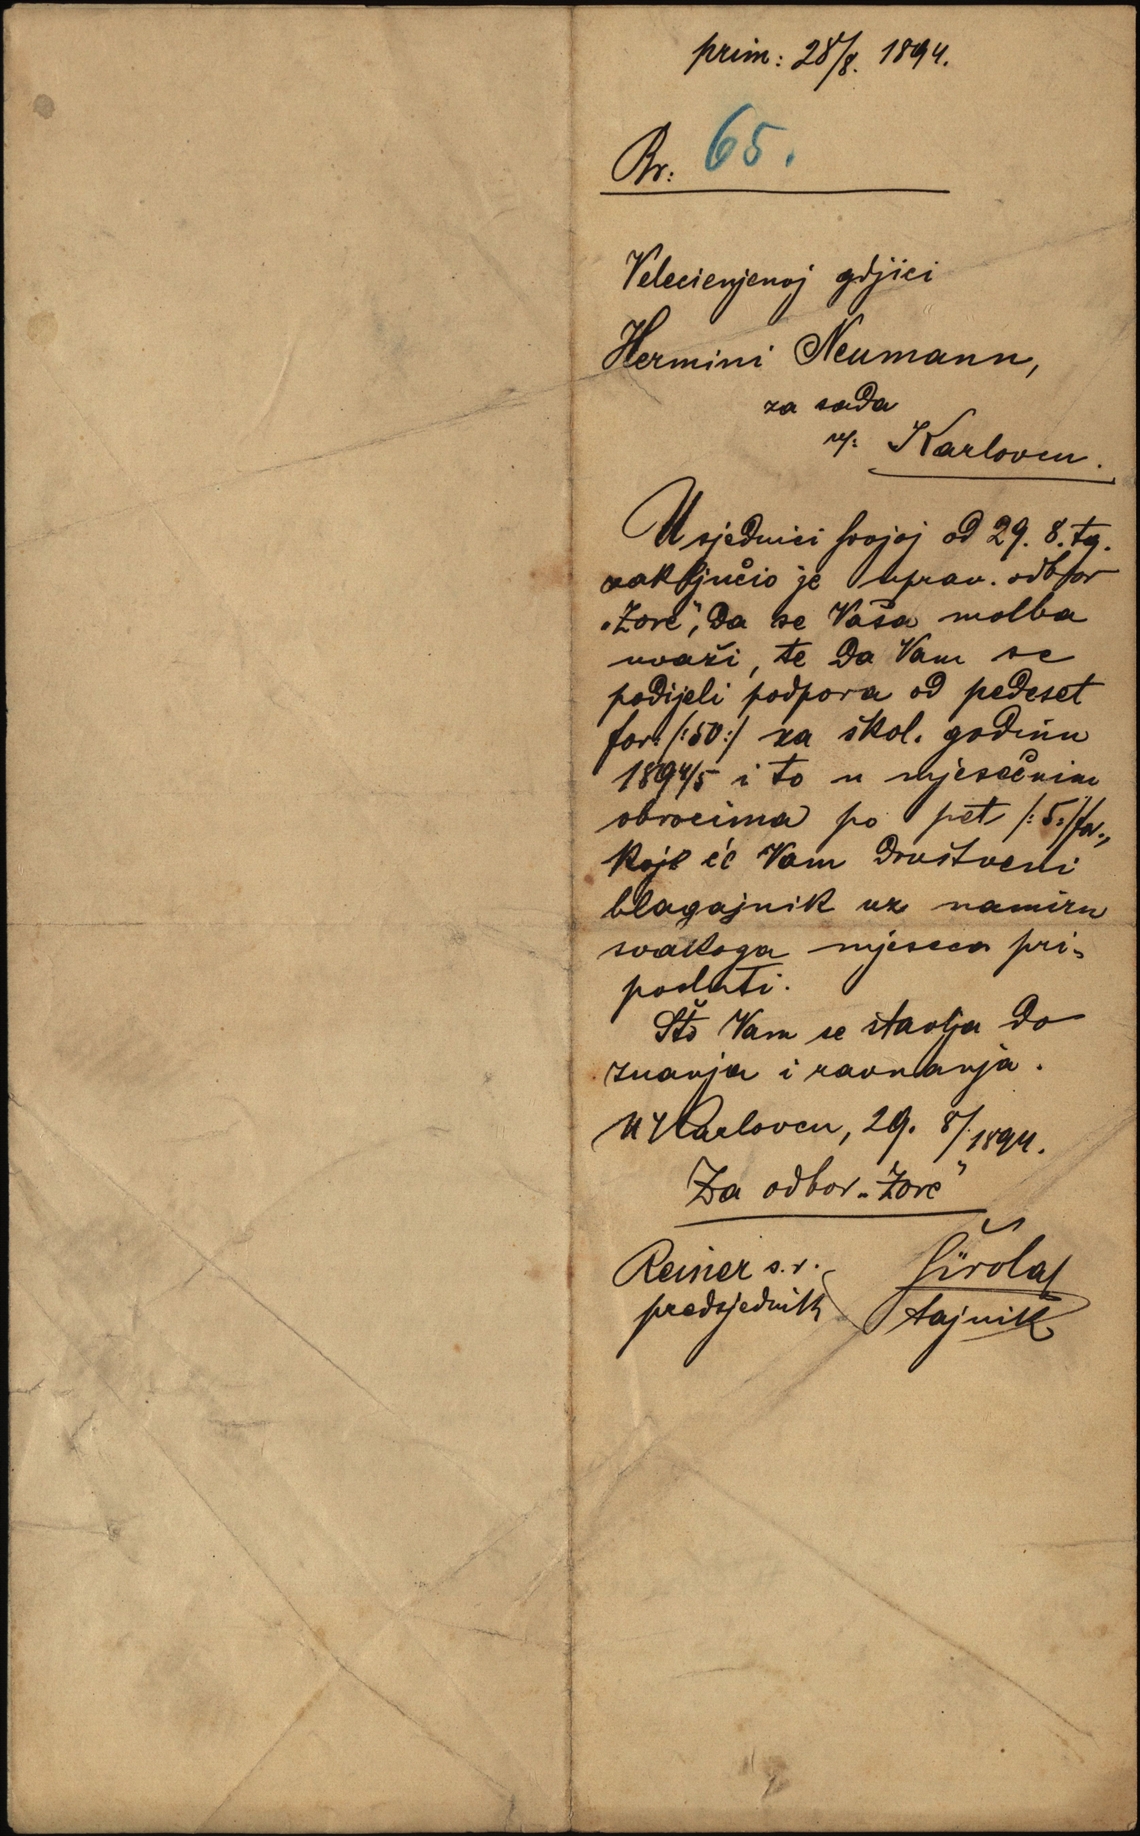 prim: 28/8. 1894.
Br: 65.
Velecienjenoj gdjici
Hermini Neumann,
za sada
u: Karlovcu.
U sjednici svojoj od 29. 8. tg.
zaključio je uprav. odbor
„Zore", da se Vaša molba
uvaži, te da Vam se
podijeli podpora od pedeset
for: /:50:/ za škol. godinu
1894/5 i to u mjesečnim
obrocima po pet /:5:/ for.,
koje će Vam društveni
blagajnik uz namiru
svakoga mjeseca pri-
poslati.
Što Vam se stavlja do
znanja i ravnanja.
U Karlovcu, 29. 8/. 1894.
Za odbor „Zore"
Reiner s. r. Širola
predsjednik tajnik